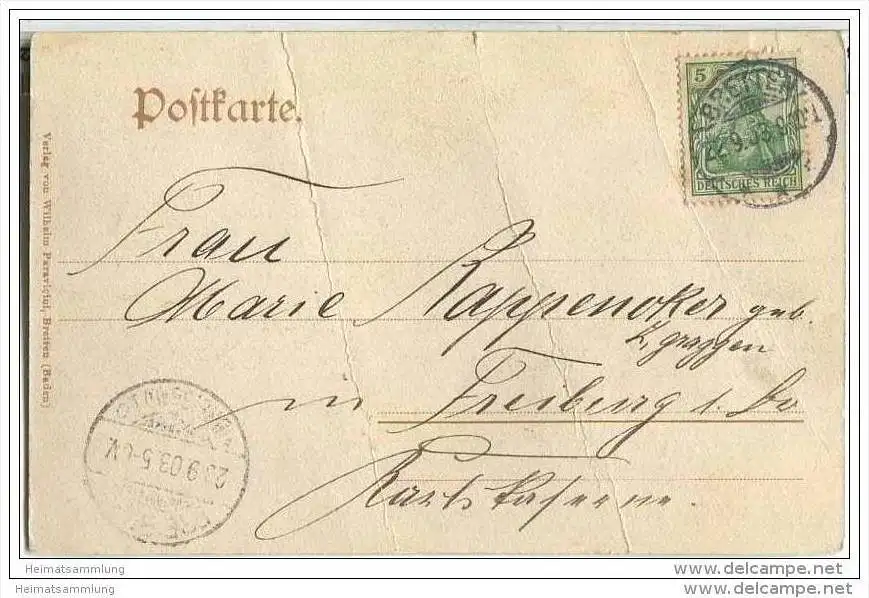 Postkarte.
5
DEUTSCHES REICH
BRETTEN
22.9.03
Verlag von Wilhelm Paravicini, Bretten (Baden)
Frau
Marie Rappenecker geb.
Z'graggen
in Freiburg i. Br
Karlskaserne.
23.9.03.5-6V.
Heimatsammlung
Heimatsammlung
www.delcampe.net
www.delcampe.net